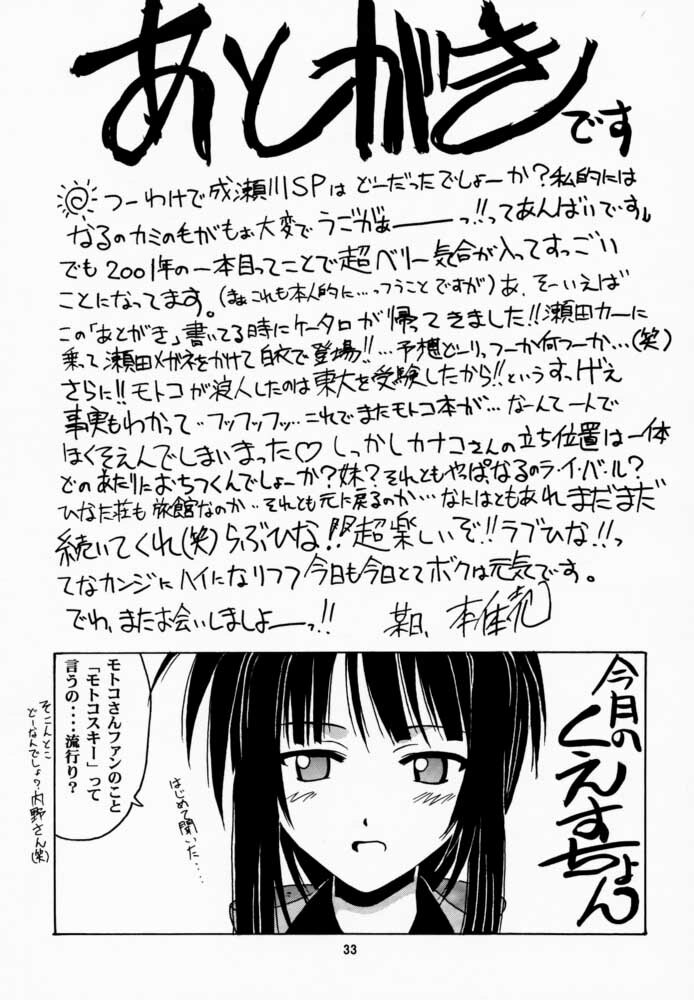 あとがきです
つーわけで成瀬川SPはどーだったでしょーか?私的には
なるのカミの毛がもぉ大変でうごがぁーーっ!!ってあんばいです。
でも2001年の一本目ってことで超ベリー気合が入ってすっごい
ことになってます。(まぁこれも本人的に…っつうことですが)あ、そーいえば
この「あとがき」書いてる時にケータロが帰ってきました!!瀬田カーに
乗って瀬田メガネをかけて白衣で登場!!…予想どーりっつーか何つーか…(笑)
さらに!!モトコが浪人したのは東大を受験したから!!というすっげえ
事実もわかって…フッフッフッ…これでまたモトコ本が…なーんて一人で
ほくそえんでしまいまった♡しっかしカナコさんの立ち位置は一体
どのあたりにおちつくんでしょーか?妹?それともやぱなるのラ・イ・バ・ル?
ひなた荘も旅館なのか…それとも元に戻るのか…なにはともあれまだまだ
続いてくれ(笑)らぶひな!!超楽しいぞ!!ラブひな!!っ
てなカンジにハイになりつつ今日も今日とてボクは元気です。
でわ、またお会いしましょーーっ!!
今月のくえすちょん
モトコさんファンのこと
「モトコスキー」って
言うの‥‥流行り?
はじめて聞いた…
そこんとこ
どーなんでしょ?内野さん(笑)
33